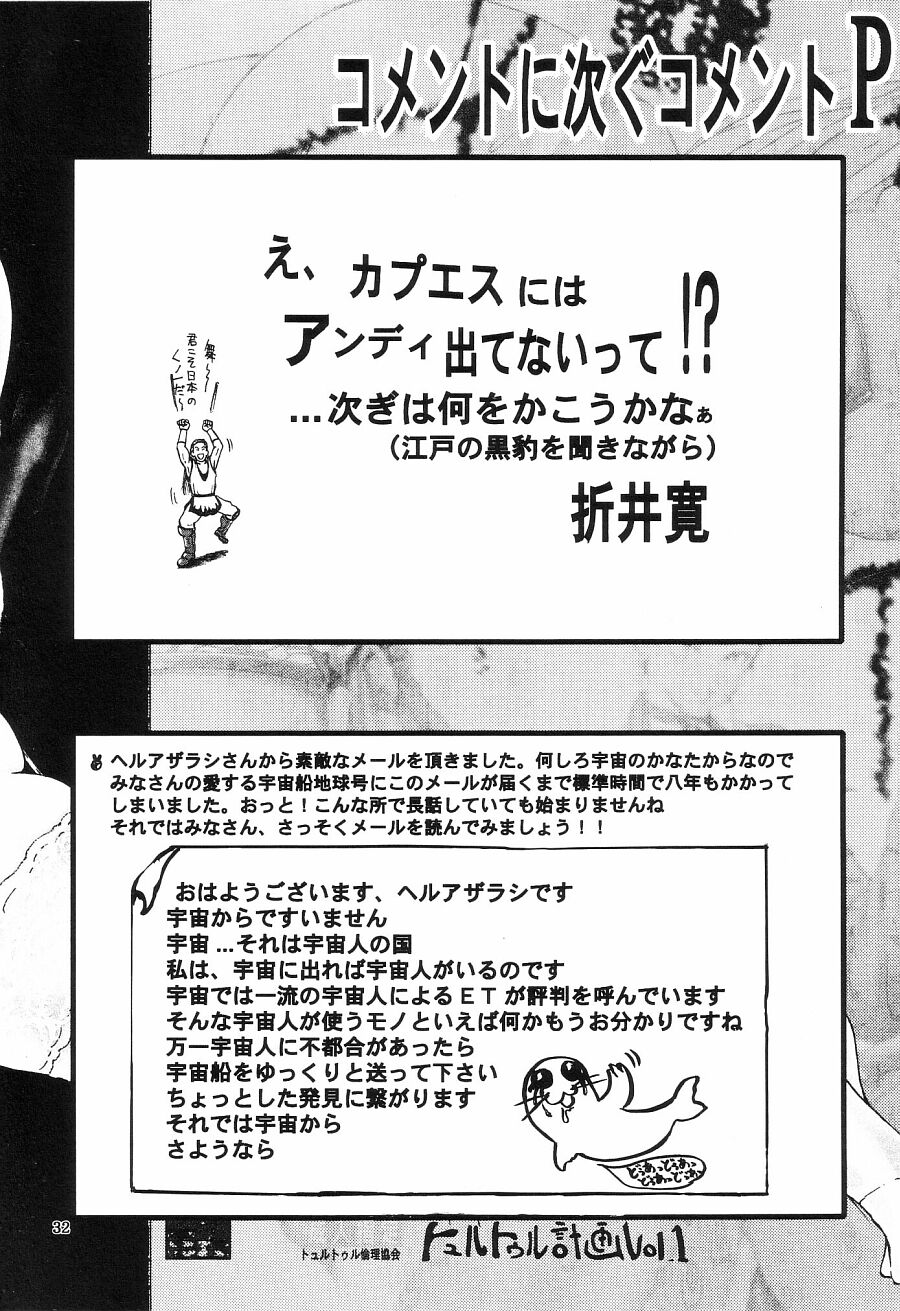 コメントに次ぐコメントP
え、カプエスには
アンディ出てないって!?
…次ぎは何をかこうかなぁ
（江戸の黒豹を聞きながら）
折井寛
舞〜〜
君こそ日本の
くノ一だ〜
ヘルアザラシさんから素敵なメールを頂きました。何しろ宇宙のかなたからなので
みなさんの愛する宇宙船地球号にこのメールが届くまで標準時間で八年もかかって
しまいました。おっと！こんな所で長話していても始まりませんね
それではみなさん、さっそくメールを読んでみましょう！！
おはようございます、ヘルアザラシです
宇宙からですいません
宇宙…それは宇宙人の国
私は、宇宙に出れば宇宙人がいるのです
宇宙では一流の宇宙人によるＥＴが評判を呼んでいます
そんな宇宙人が使うモノといえば何かもうお分かりですね
万一宇宙人に不都合があったら
宇宙船をゆっくりと送って下さい
ちょっとした発見に繋がります
それでは宇宙から
さようなら
どぅあっどぅあっ
どぅあっどぅあ
32
トュルトゥル倫理協会
トュルトゥル計画Vol1